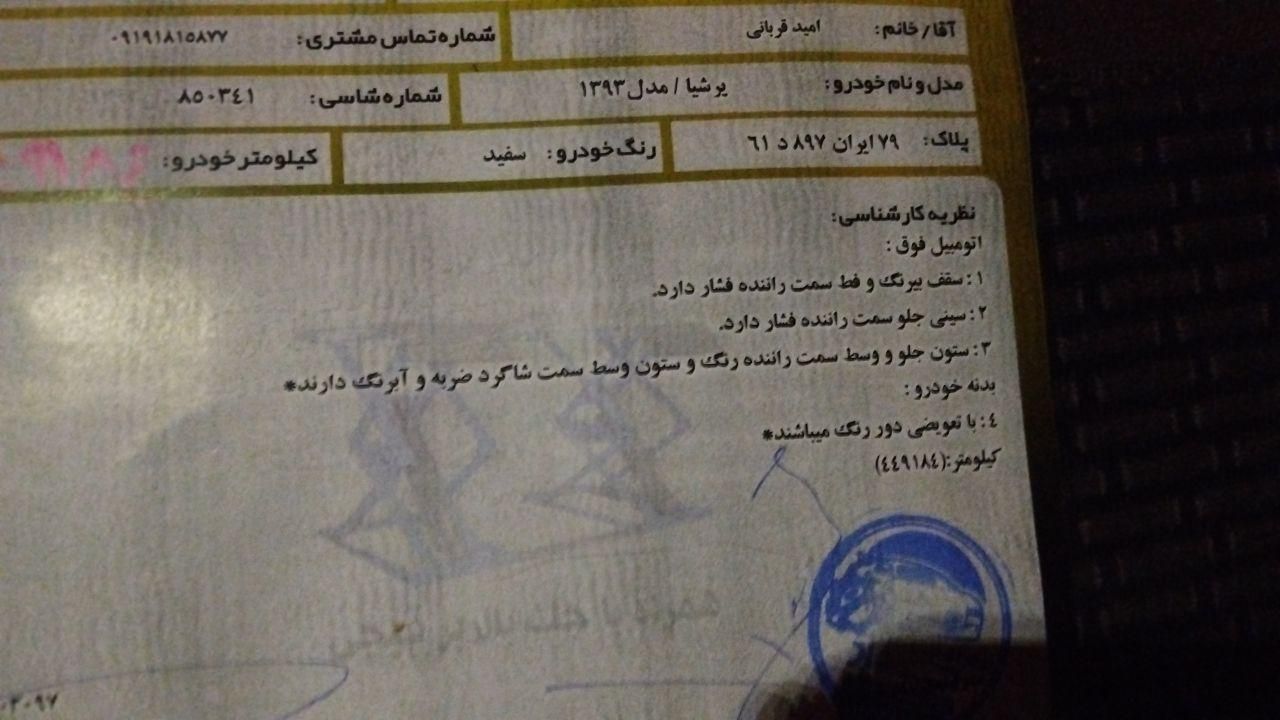 آقا/خانم: امید قربانی شماره تماس مشتری: ۰۹۱۹۱۸۱۵۸۷۷
مدل و نام خودرو: پرشیا / مدل ۱۳۹۳ شماره شاسی: ۸۵۰۳۴۱
پلاک: ۷۹ ایران ۸۹۷ د ۶۱ رنگ خودرو: سفید کیلومتر خودرو:
نظریه کارشناسی:
اتومبیل فوق :
۱: سقف بیرنگ و فط سمت راننده فشار دارد.
۲: سینی جلو سمت راننده فشار دارد.
۳: ستون جلو و وسط سمت راننده رنگ و ستون وسط سمت شاگرد ضربه و آبرنگ دارند*
بدنه خودرو :
٤: با تعویضی دور رنگ میباشند*
کیلومتر:(٤٤٩١٨٤)